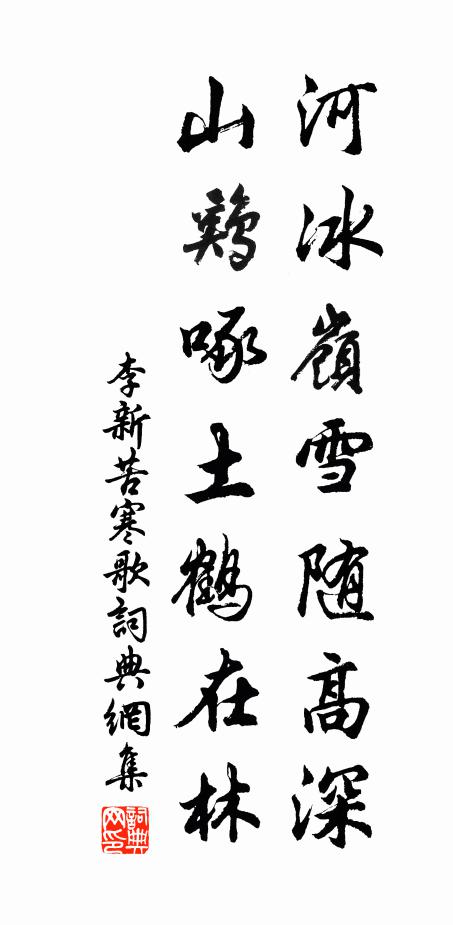 河冰嶺雪随高深
山鷄啄土鶴在林
李新苦寒歌詞典網集
詞典网印